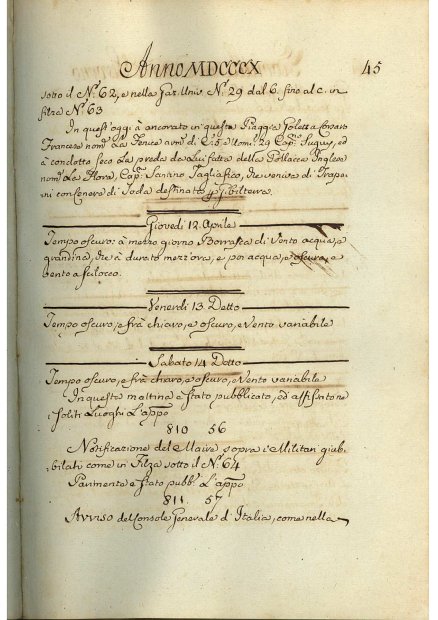 Anno MDCCCX 45
sotto il N.º 62, e nella Gaz. Univ. N.º 29 dal 6. fino al c. in
filza N.º 63
In quest'oggi à ancorato in questa Piaggia Goletta Corsara
Francese nom.ª La Fenice arm.ª di C. 5 e Uom. 29 Cap.º ed
à condotto seco La preda da Lui fatta della Inglese
nom.ª La Flora, Cap.º Santino Tagliafico, che veniva di Trapa-
ni con Cenere di Soda destinato p. Gibilterra.
Giovedì 12. Aprile
Tempo oscuro: à mezzo giorno Borrasca di Vento acqua, e
grandine, che à durato mezz'ora, e poi acqua, e oscuro, e
vento a scilocco.
Venerdì 13. Detto
Tempo oscuro, e frà chiaro, e oscuro, e Vento variabile
Sabato 14. Detto
Tempo oscuro, e frà chiaro, e oscuro, e Vento variabile
In questa mattina è stato pubblicato, ed affisso ne
soliti Luoghi L'app.º
810 56
Notificazione del Maire sopra i Militari giub-
bilati come in Filza sotto il N.º 64
Parimente è stato pubb.º L'app.º
811. 57
Avviso del Console Generale d'Italia, come nella